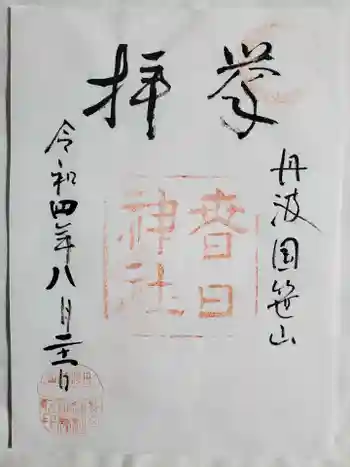 奉拝
丹波国笹山
春日
神社
令和四年八月二十一日